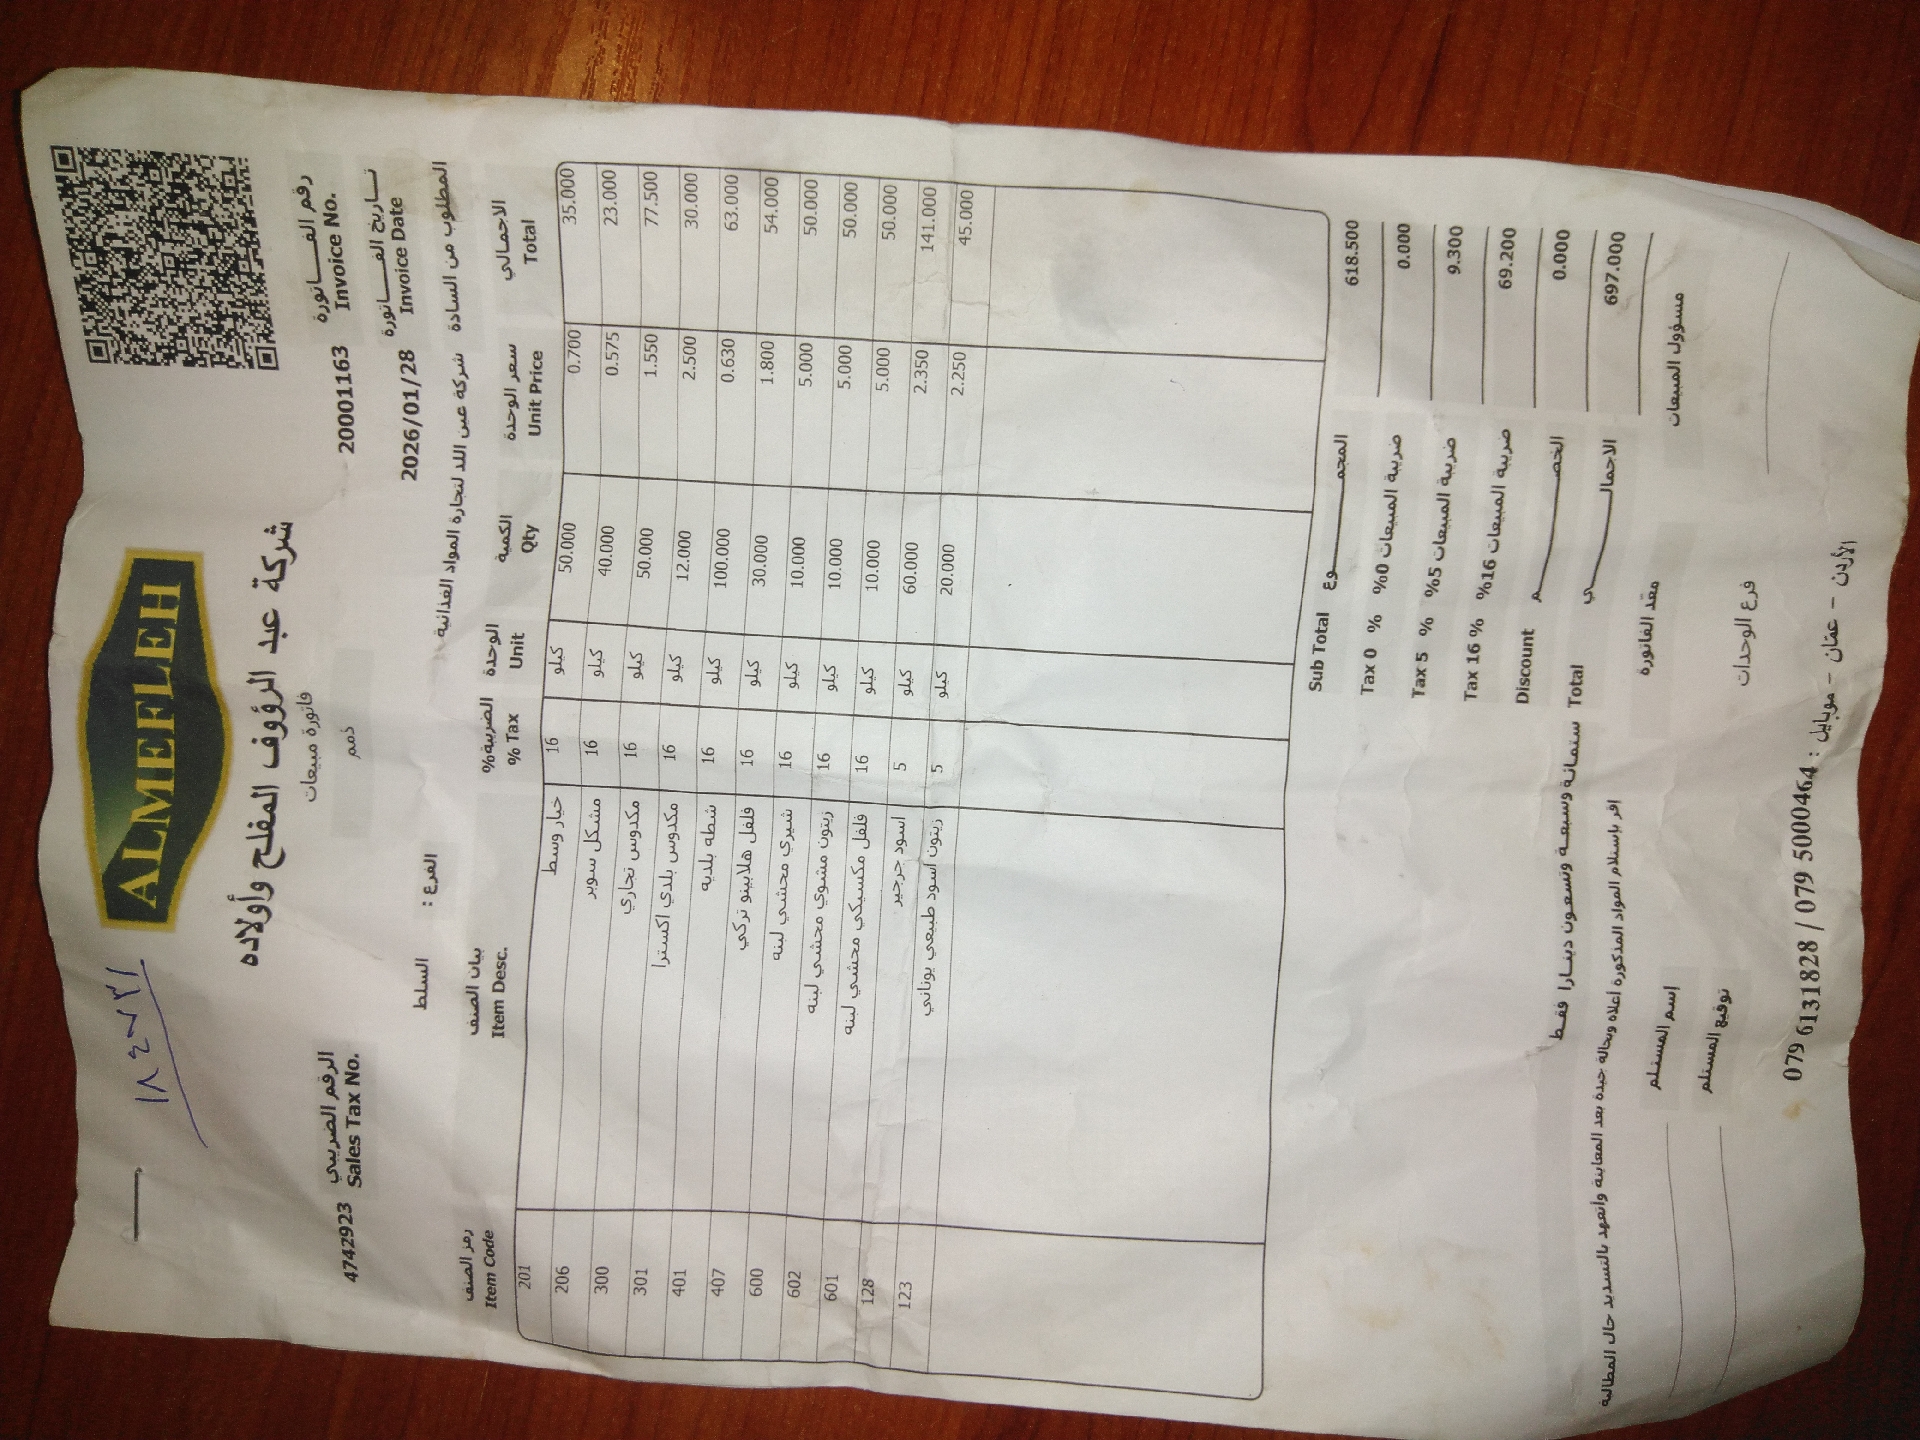 ١٨٤٧٣١
ALMEFLEH
شركة عبد الرؤوف المفلح وأولاده
فاتورة مبيعات
ذمم
رقم الفـــاتورة
Invoice No. 20001163
4742923 الرقم الضريبي
Sales Tax No.
تـاريخ الفـــاتورة
Invoice Date 2026/01/28
الفرع : السلط
المطلوب من السادة شركة عين اللد لتجارة المواد الغذائية
رمز الصنف بيان الصنف الضريبة% الوحدة الكمية سعر الوحدة الاجمالي
Item Code Item Desc. % Tax Unit Qty Unit Price Total
201 خيار وسط 16 كيلو 50.000 0.700 35.000
206 مشكل سوبر 16 كيلو 40.000 0.575 23.000
300 مكدوس تجاري 16 كيلو 50.000 1.550 77.500
301 مكدوس بلدي اكسترا 16 كيلو 12.000 2.500 30.000
401 شطه بلديه 16 كيلو 100.000 0.630 63.000
407 فلفل هلابينو تركي 16 كيلو 30.000 1.800 54.000
600 شيري محشي لبنه 16 كيلو 10.000 5.000 50.000
602 زيتون مشوي محشي لبنه 16 كيلو 10.000 5.000 50.000
601 فلفل مكسيكي محشي لبنه 16 كيلو 10.000 5.000 50.000
128 اسود جرجير 5 كيلو 60.000 2.350 141.000
123 زيتون اسود طبيعي يوناني 5 كيلو 20.000 2.250 45.000
Sub Total المجمـــــــوع 618.500
Tax 0 % ضريبة المبيعات 0% 0.000
Tax 5 % ضريبة المبيعات 5% 9.300
Tax 16 % ضريبة المبيعات 16% 69.200
Discount الخصـــــــم 0.000
Total الاجمالـــــــي 697.000
ستمائة وسبعة وتسعون دينارا فقط
اقر بإستلام المواد المذكورة اعلاه وبحالة جيدة بعد المعاينة وأتعهد بالتسديد حال المطالبة
إسم المستلم معد الفاتورة مسؤول المبيعات
توقيع المستلم فرع الوحدات
الأردن - عمّان - موبايل : 079 5000464 / 079 6131828